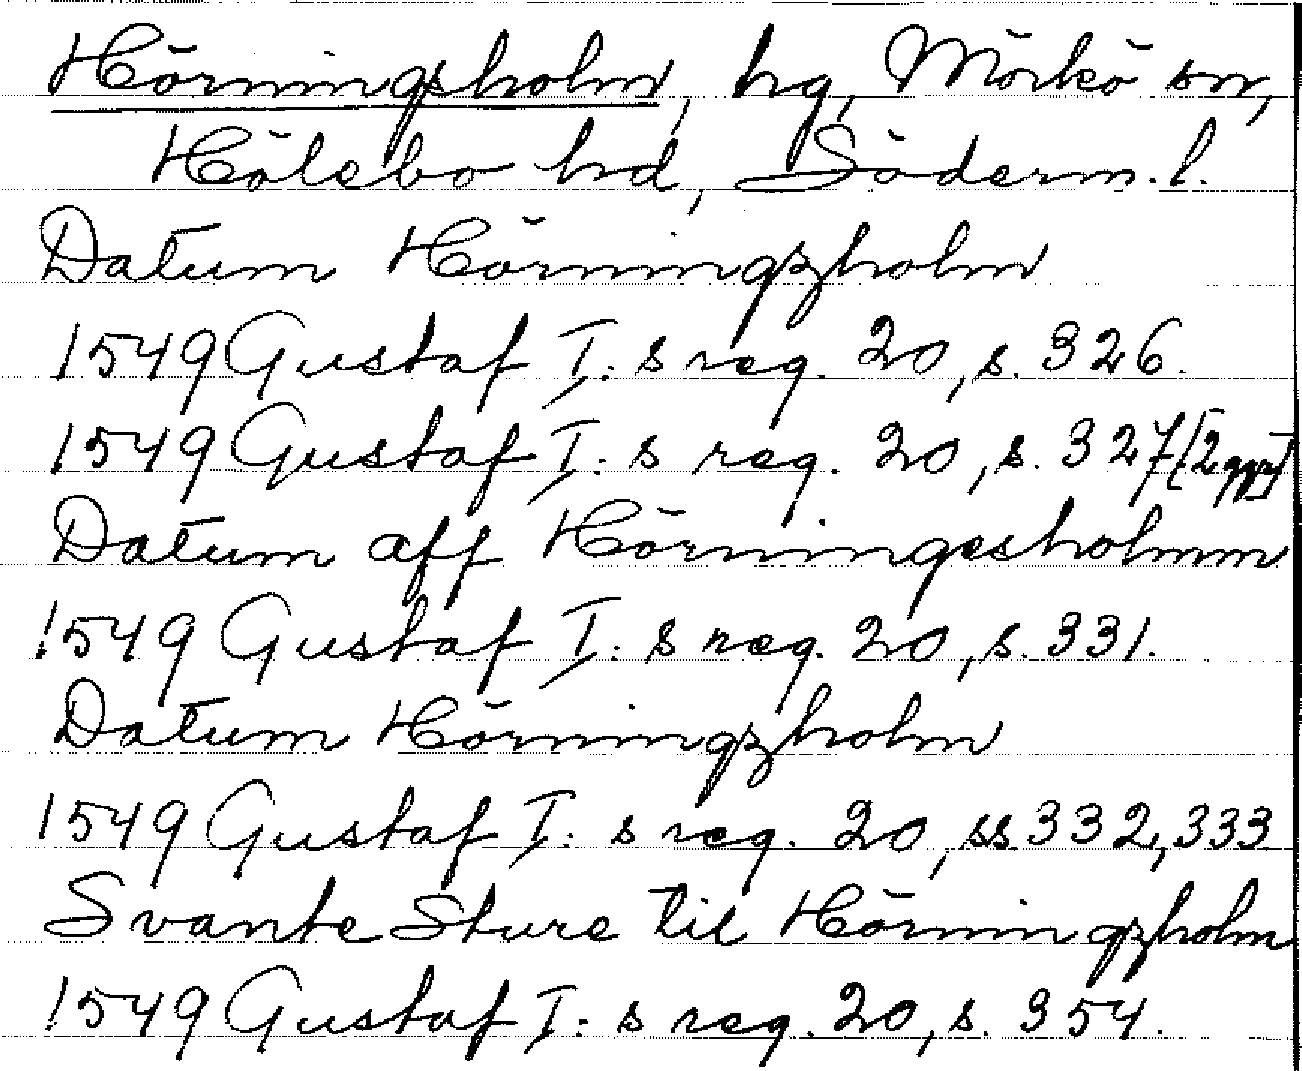 Hörningsholm, hg, Mörkö sn,
Hölebo hd, Söderm. l.
Datum Hörningzholm
1549 Gustaf I: s reg. 20, s. 326.
1549 Gustaf I: s reg. 20, s. 327 [2 ggr]
Datum aff Hörningesholmm
1549 Gustaf I: s reg. 20, s. 331.
Datum Hörningzholm
1549 Gustaf I: s reg. 20, ss 332, 333
Svante Sture til Hörningzholm
1549 Gustaf I: s reg. 20, s. 354.